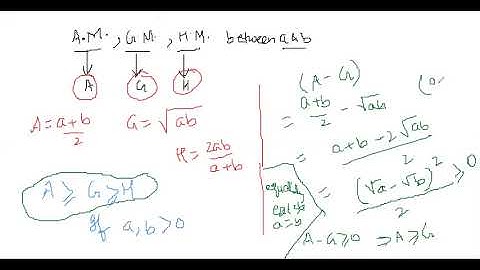 A.M. , G.M. , H.M. between a & b
A G H
A = a+b/2 G = √ab
H = 2ab/a+b
A ≥ G ≥ H
If a, b > 0
(A - G)
= a+b/2 - √ab
= a+b-2√ab/2
= (√a - √b)²/2 ≥ 0
equality
a=b
A-G ≥ 0 ⇒ A ≥ G